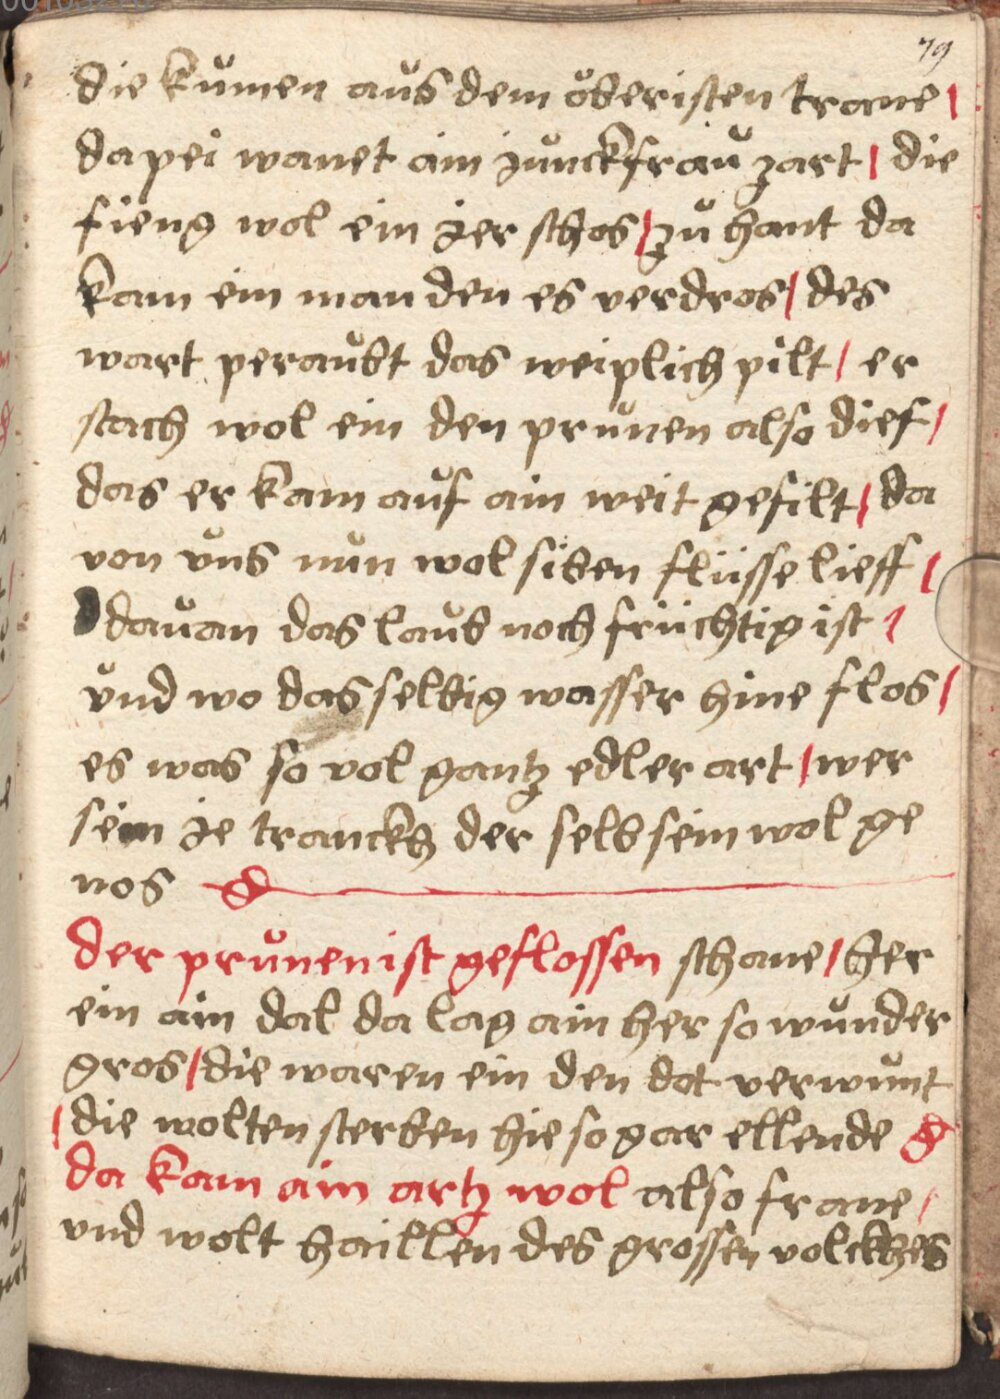 79
die kůmen aůs dem öberisten trone /
da pei wanet ain junckfraů zart / die
fieng wol ein jer schos / zů hant da
kam ein man den es verdros / des
wart peraůbt das weiplich pilt / er
stach wol ein den průnen also dief /
das er kam auf ain weit gefilt / da
von ůns nůn wol siben flüsse lieff /
daůan das laůb noch früchtig ist /
ůnd wo das selbig wasser hine flos /
es was so vol gantz edler art / wer
sein je tranckh der selb sein wol ge
nos
der průnen ist geflossen schane / her
ein ain dal da lag ain her so wůnder
gros / die waren ein den dot verwůnt
/ die wolten sterben hie so gar ellende
da kam ain artz wol also frane /
vnd wolt haillen des grossen volckhes